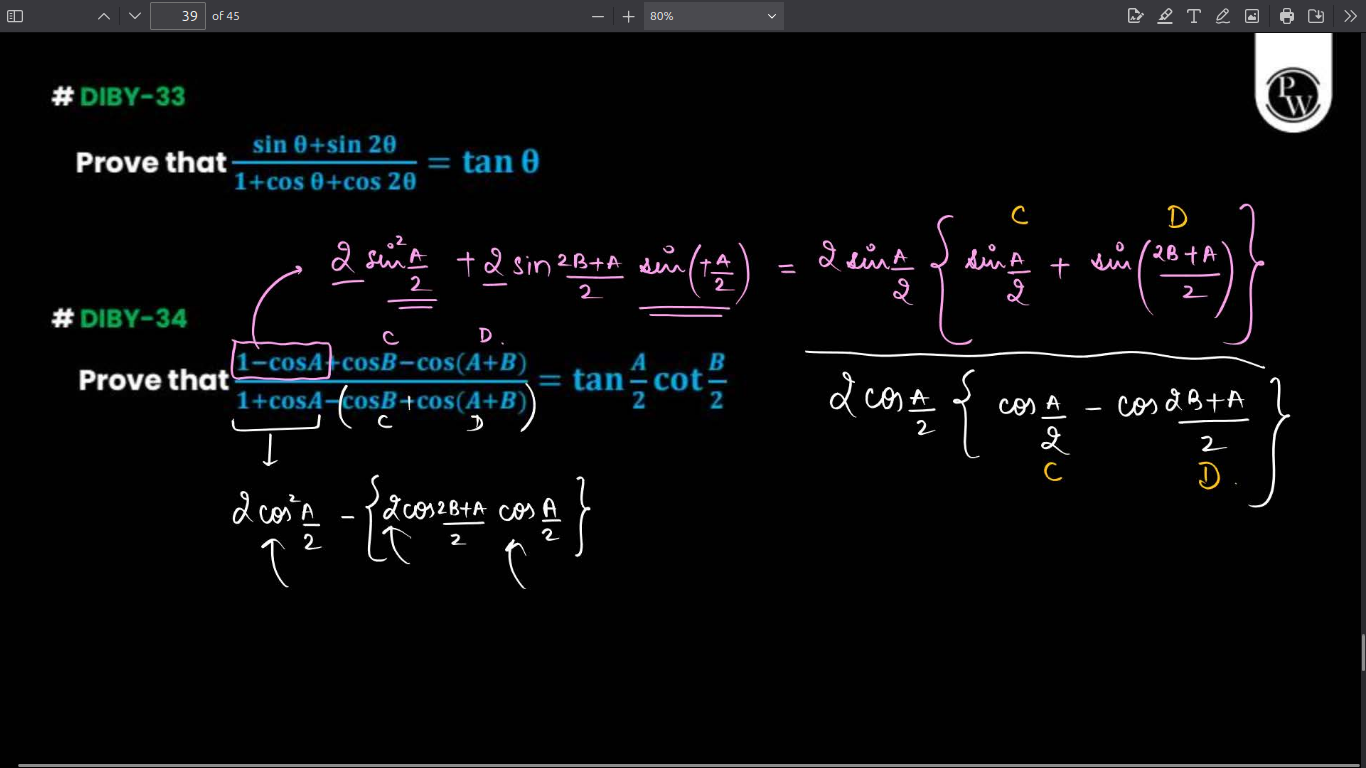 39 of 45
80%
# DIBY-33
PW
Prove that (sin θ+sin 2θ)/(1+cos θ+cos 2θ) = tan θ
C D
2 sin² A/2 + 2 sin (2B+A)/2 sin(+A/2) = 2 sin A/2 { sin A/2 + sin((2B+A)/2) }
# DIBY-34
C D.
Prove that (1−cosA+cosB−cos(A+B))/(1+cosA−(cosB+cos(A+B))) = tan A/2 cot B/2
C D
2 cos A/2 { cos A/2 − cos (2B+A)/2 }
C D.
2 cos² A/2 − { 2 cos (2B+A)/2 cos A/2 }